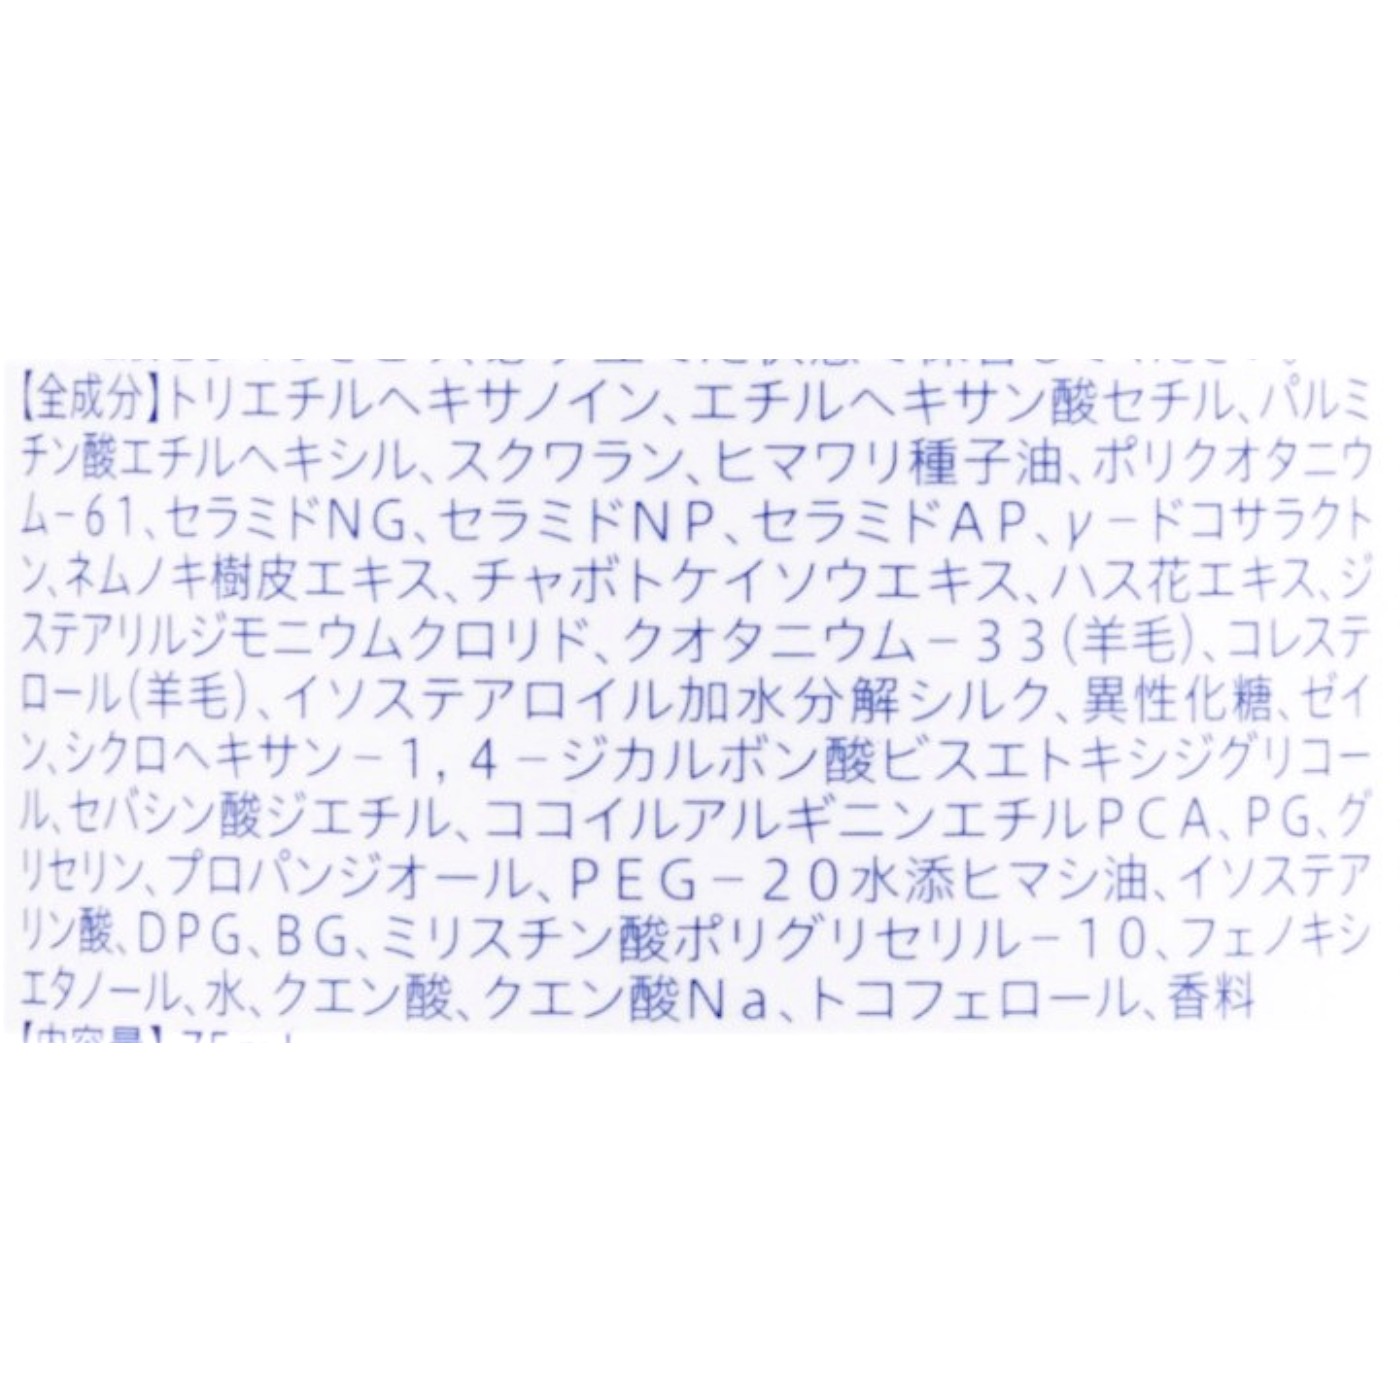 【全成分】トリエチルヘキサノイン、エチルヘキサン酸セチル、パルミ
チン酸エチルヘキシル、スクワラン、ヒマワリ種子油、ポリクオタニウ
ム－61、セラミドNG、セラミドNP、セラミドAP、γ－ドコサラクト
ン、ネムノキ樹皮エキス、チャボトケイソウエキス、ハス花エキス、ジ
ステアリルジモニウムクロリド、クオタニウム－33(羊毛)、コレステ
ロール(羊毛)、イソステアロイル加水分解シルク、異性化糖、ゼイ
ン、シクロヘキサン－1,4－ジカルボン酸ビスエトキシジグリコー
ル、セバシン酸ジエチル、ココイルアルギニンエチルPCA、PG、グ
リセリン、プロパンジオール、PEG－20水添ヒマシ油、イソステア
リン酸、DPG、BG、ミリスチン酸ポリグリセリル－10、フェノキシ
エタノール、水、クエン酸、クエン酸Na、トコフェロール、香料
【内容量】